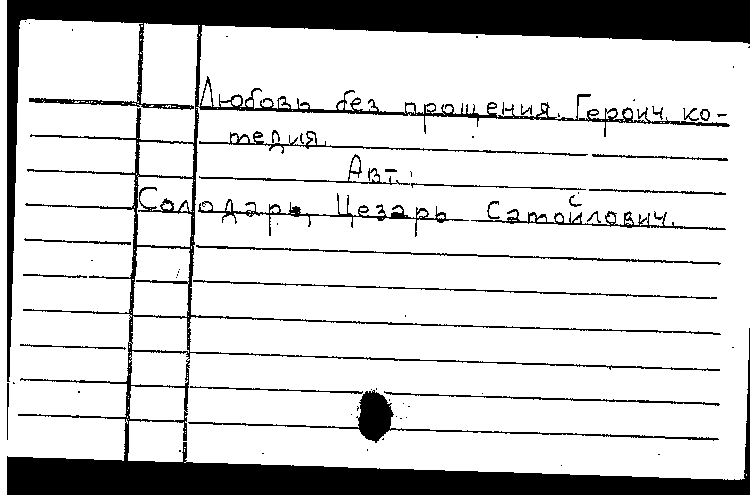 Любовь без прощения. Героич. ко-
медия.
Авт.:
Солодарь, Цезарь Самойлович.